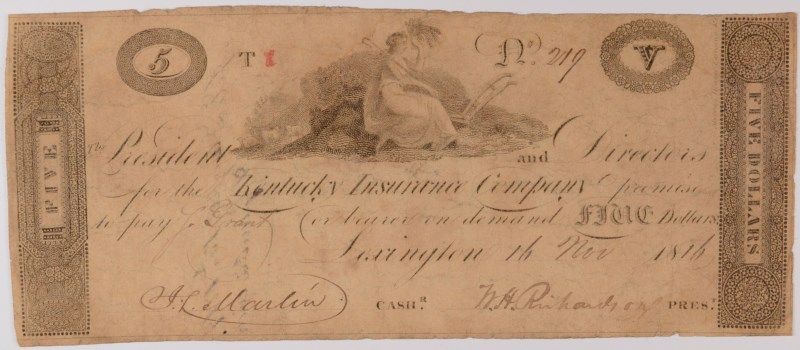 5 T 1 No. 219 V
FIVE
The President and Directors
for the Kentucky Insurance Company promise
to pay J. Grant or bearer on demand FIVE Dollars
Lexington 16 Nov 1816
J. L. Martin CASHR. W. H. Richardson PREST.
FIVE DOLLARS